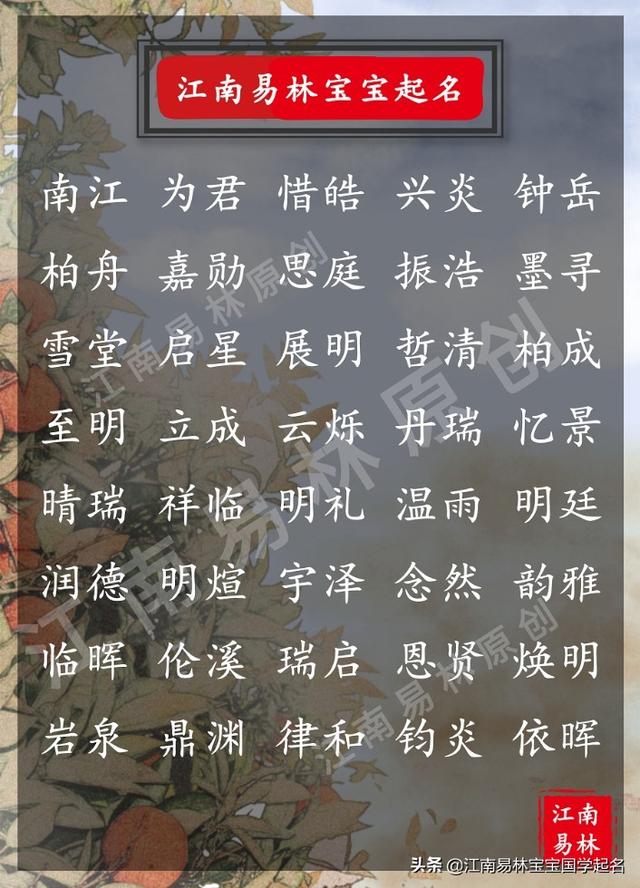 江南易林宝宝起名
南江 为君 惜皓 兴炎 钟岳
柏舟 嘉勋 思庭 振浩 墨寻
雪堂 启星 展明 哲清 柏成
至明 立成 云烁 丹瑞 忆景
晴瑞 祥临 明礼 温雨 明廷
润德 明煊 宇泽 念然 韵雅
临晖 伦溪 瑞启 恩贤 焕明
岩泉 鼎渊 律和 钧炎 依晖
江南易林原创
江南易林原创
江南易林原创
江南
易林
头条 @江南易林宝宝国学起名